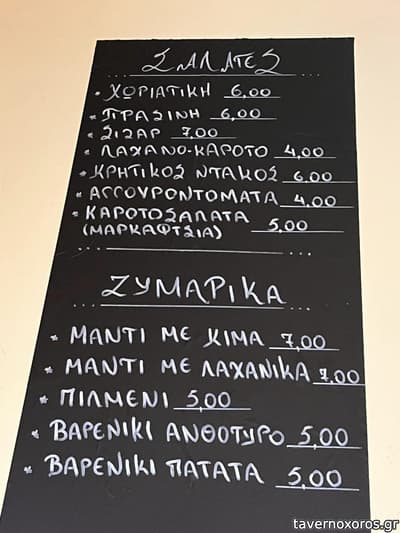 ΣΑΛΑΤΕΣ
• ΧΩΡΙΑΤΙΚΗ 6,00
• ΠΡΑΣΙΝΗ 6,00
• ΣΙΖΑΡ 7,00
• ΛΑΧΑΝΟ-ΚΑΡΟΤΟ 4,00
• ΚΡΗΤΙΚΟΣ ΝΤΑΚΟΣ 6,00
• ΑΓΓΟΥΡΟΝΤΟΜΑΤΑ 4,00
• ΚΑΡΟΤΟΣΑΛΑΤΑ 5,00
(ΜΑΡΚΑΦΤΣΙΑ)
ΖΥΜΑΡΙΚΑ
• ΜΑΝΤΙ ΜΕ ΚΙΜΑ 7,00
• ΜΑΝΤΙ ΜΕ ΛΑΧΑΝΙΚΑ 7,00
• ΠΙΛΜΕΝΙ 5,00
• ΒΑΡΕΝΙΚΙ ΑΝΘΟΤΥΡΟ 5,00
• ΒΑΡΕΝΙΚΙ ΠΑΤΑΤΑ 5,00
tavernoxoros.gr